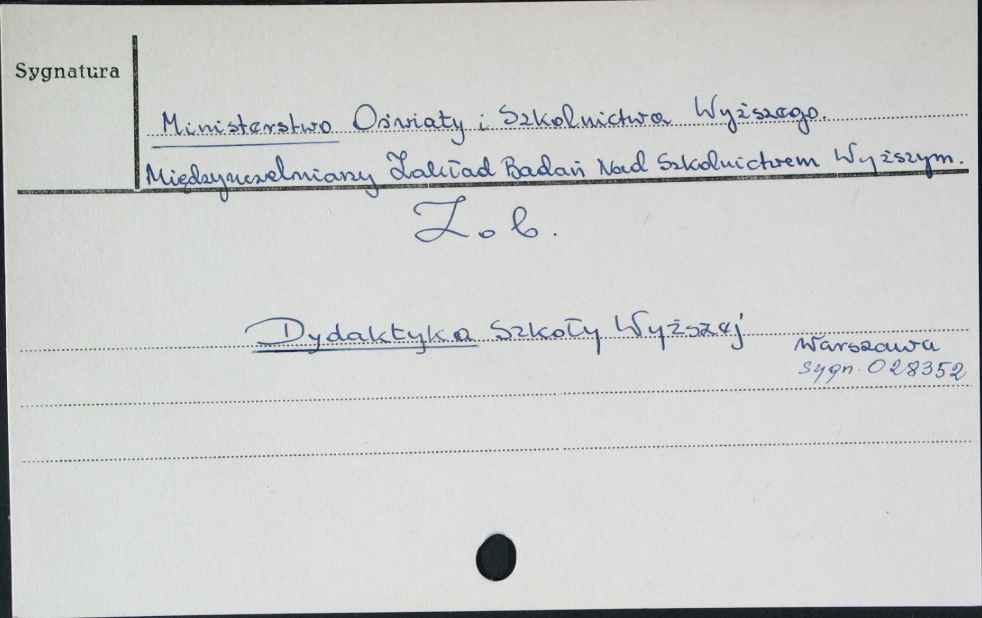 Sygnatura
Ministerstwo Oświaty i Szkolnictwa Wyższego.
Międzyuczelniany Zakład Badań Nad Szkolnictwem Wyższym.
Zob.
Dydaktyka Szkoły Wyższej
Warszawa
sygn. 028352